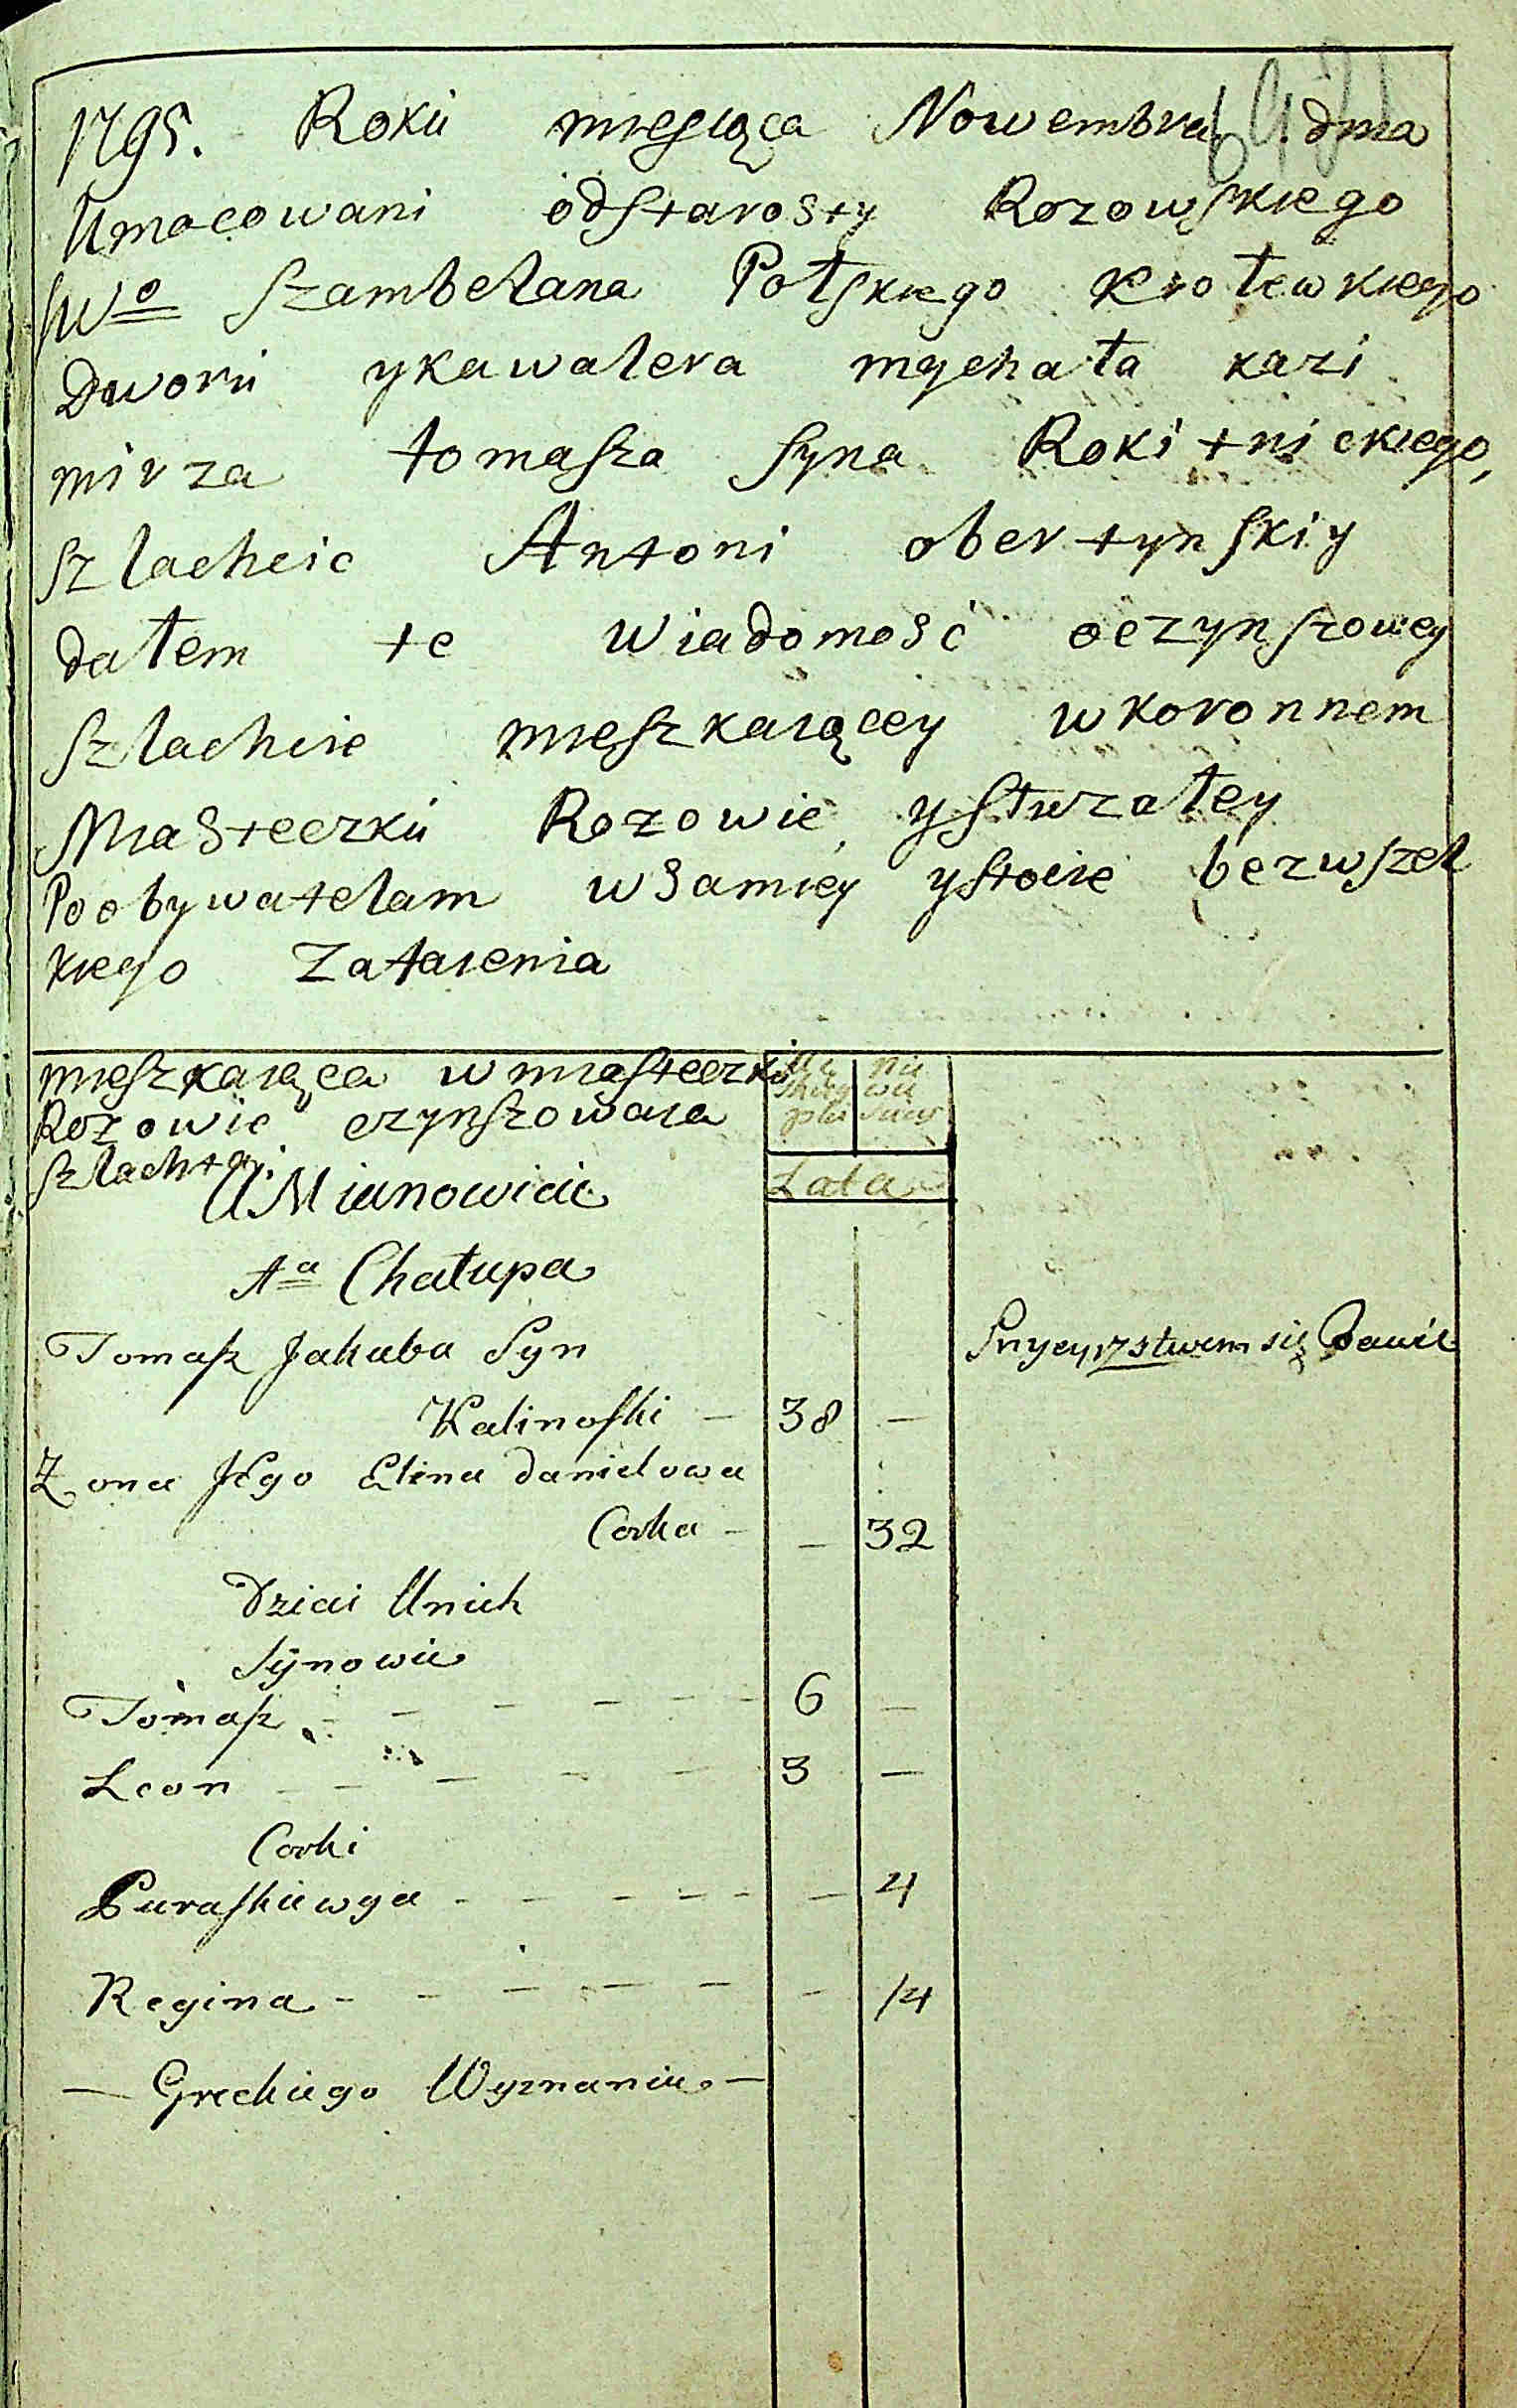 1795. Roku miesiąca Nowembra dnia
Umocowani odstarosty Rozowskiego
JWo szambelana Polskiego krolewkiego
Dworu ykawalera mychała kazi
mirza tomasza syna Rokitnickiego,
szlachcic Antoni obertynskiy
dałem te wiadomość oczynszowey
szlachcie mięszkaiącey wkoronnem
Miasteczku Rozowie
Poobywatelam wsamiey ystocie bezwszel
kiego zataienia
mięszkaiąca wmiasteczku
Rozowie czynszowaia
szlachta.
A Mianowicie
Chałupa
Tomasz Jakuba Syn
Kalinoski — 38 —
Zona Jego Elena Daniełowa
Corka — — 32
Dzieci Unich
Synowie
Tomasz - - - - - 6 —
Leon - - - - - 3 —
Corki
Paraskiewya - - - - - — 4
Regina - - - - - - 14
— Greckiego Wyznania —
Lata
się Bawił